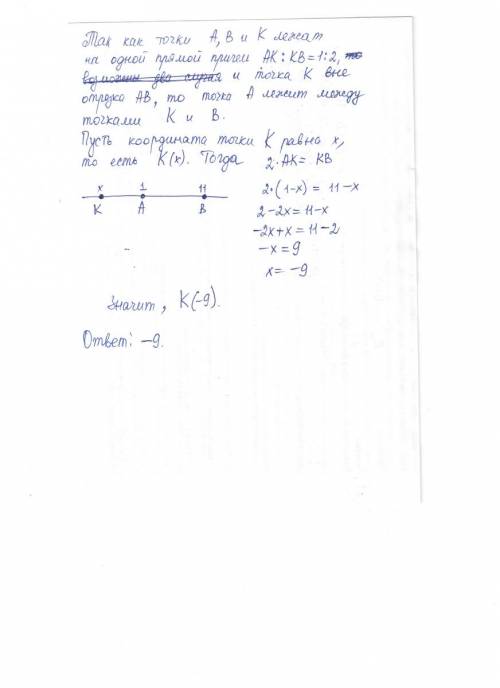 Так как точки A, B и K лежат
на одной прямой причем AK:KB=1:2, то
возможны два случая и точка K вне
отрезка AB, то точка A лежит между
точками K и B.
Пусть координата точки K равна x,
то есть K(x). Тогда 2·AK = KB
x 1 11
K A B
2·(1-x) = 11-x
2-2x = 11-x
-2x+x = 11-2
-x = 9
x = -9
Значит, K(-9).
Ответ: -9.